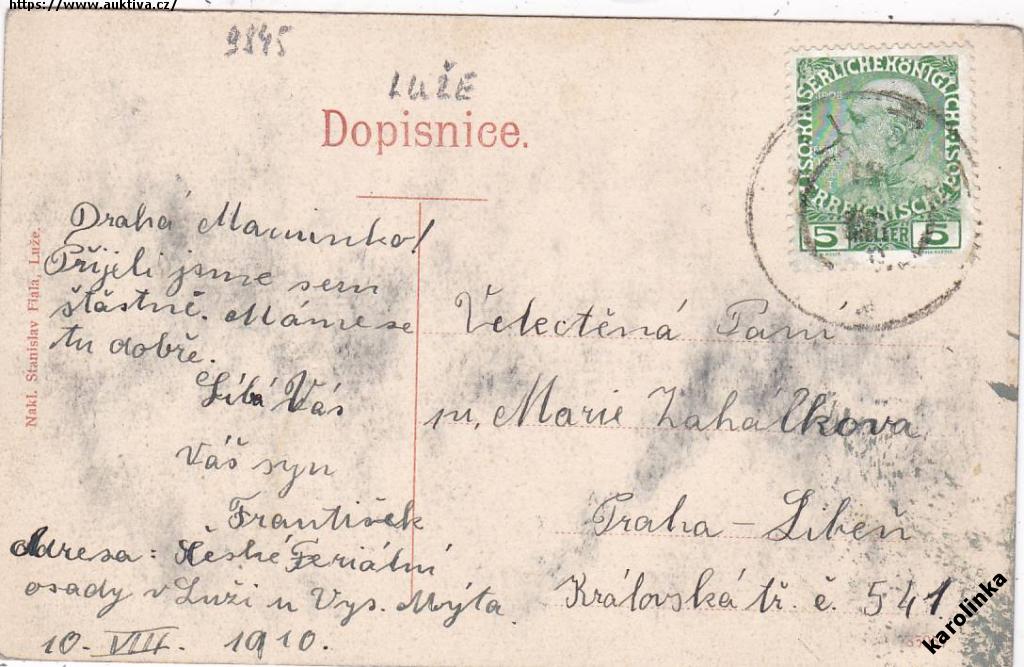 https://www.auktiva.cz/
9845
LUŽE
Dopisnice.
KAISERLICHE KÖNIGLICHE
5 HELLER 5
Nakl. Stanislav Fiala, Luže.
Drahá Maminko!
Přijeli jsme sem
štastně. Máme se
tu dobře.
Líbá Vás
Váš syn
František
Adresa: České Feriální
osady v Luži u Vys. Mýta
10. VIII. 1910.
Velectěná Paní
Marie Zahálkova
Praha - Libeň
Královská tř. č. 541
karolinka